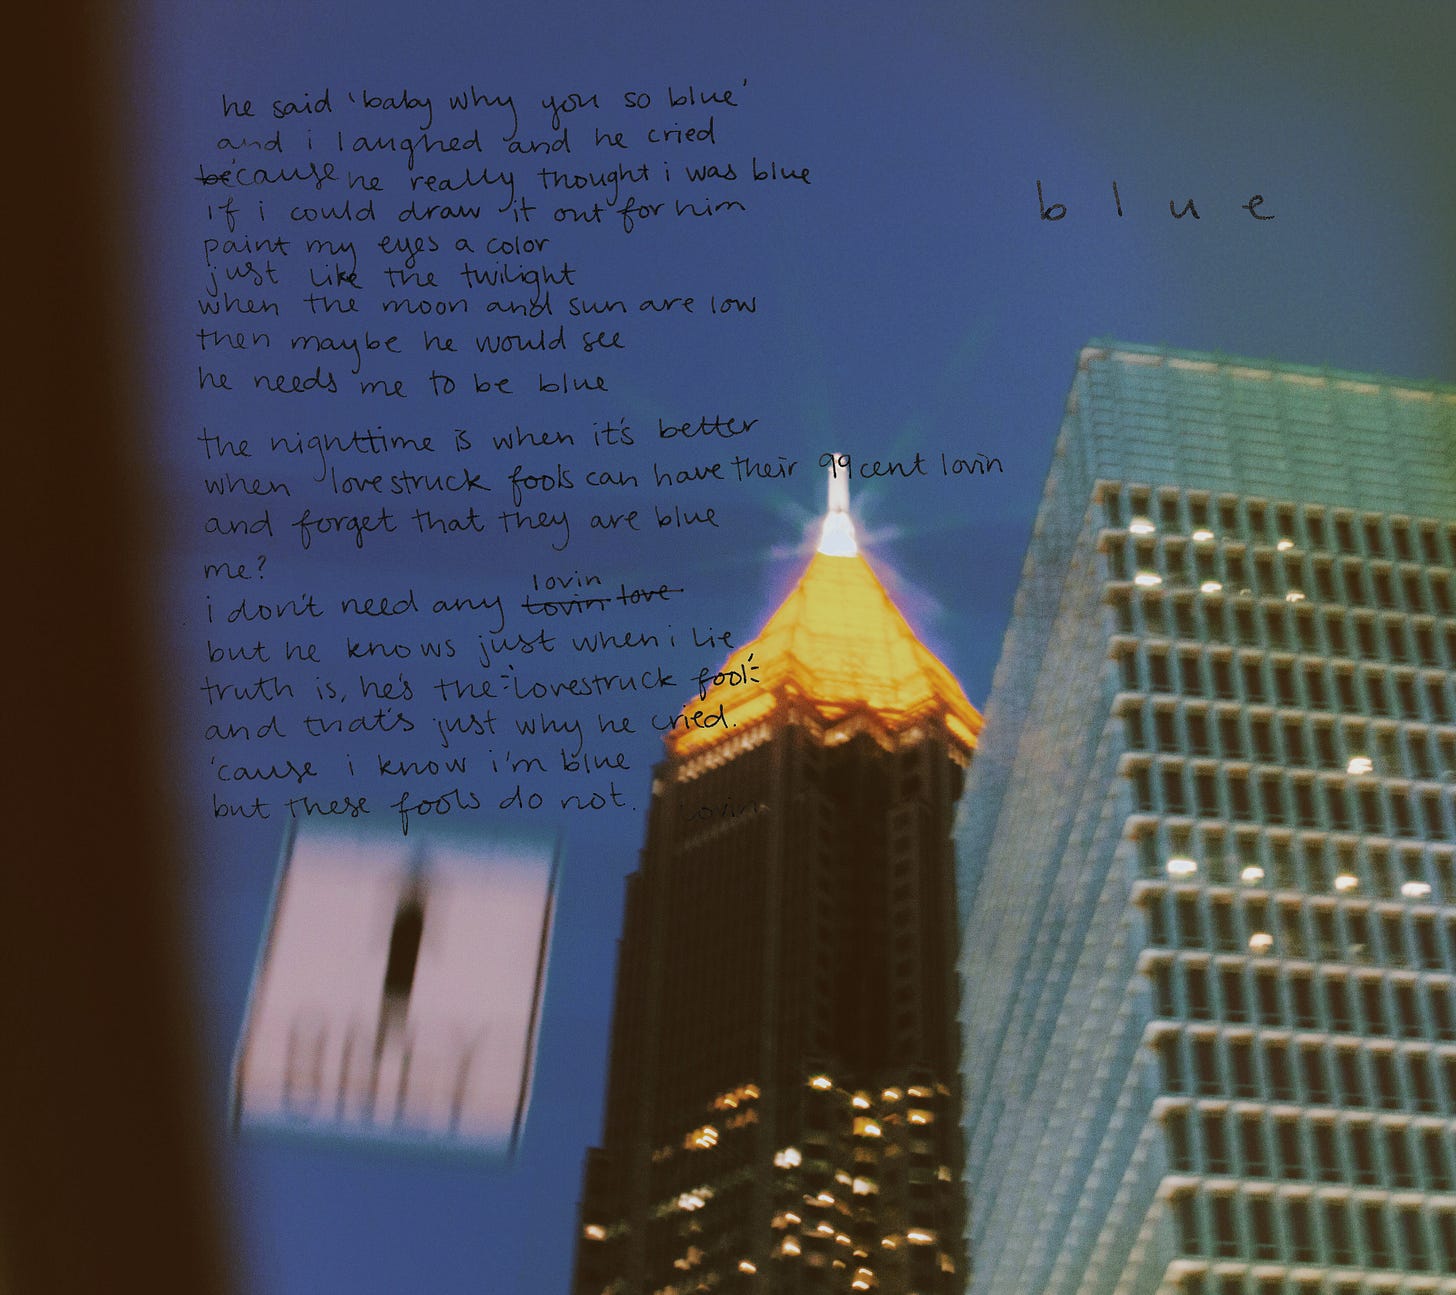 he said 'baby why you so blue'
and i laughed and he cried
because he really thought i was blue
if i could draw it out for him
paint my eyes a color
just like the twilight
when the moon and sun are low
then maybe he would see
he needs me to be blue
the nighttime is when it's better
when lovestruck fools can have their 99 cent lovin
and forget that they are blue
me?
i don't need any lovin lovin love
but he knows just when i lie
truth is, he's the lovestruck fool
and that's just why he cried.
'cause i know i'm blue
but these fools do not. lovin
blue